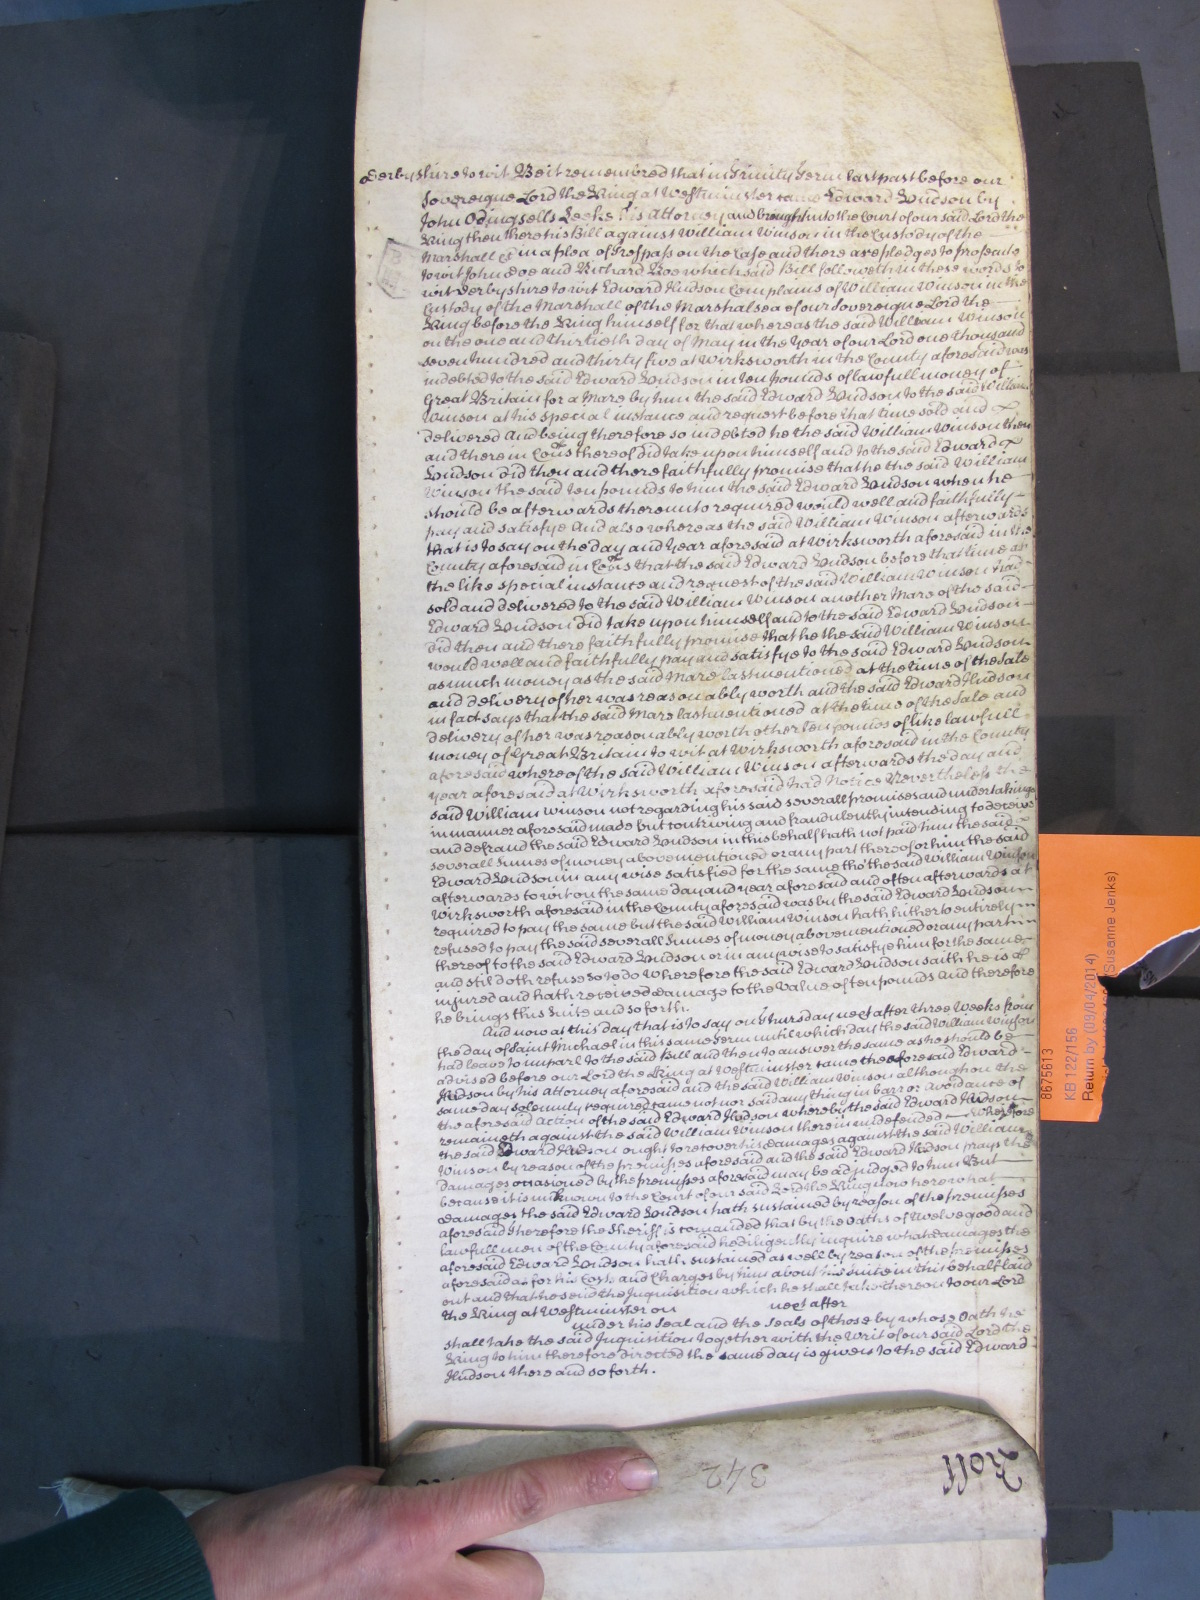 Derbyshire to wit Be it remembred that in Trinity Term last past before our
Sovereigne Lord the King at Westminster came Edward Hudson by
John Odingsells Leeke his Attorney and brought into the Court of our said Lord the
King then there his Bill against William Winson in the Custody of the
Marshall &c in a plea of Trespass on the Case and there are pledges to prosecute
to wit John Doe and Richard Roe which said Bill followeth in these words to
wit Derbyshire to wit Edward Hudson Complains of William Winson in the
Custody of the Marshall of the Marshalsea of our Sovereigne Lord the
King before the King himself for that whereas the said William Winson
on the one and thirtieth day of May in the Year of our Lord one thousand
seven hundred and thirty five at Wirksworth in the County aforesaid was
indebted to the said Edward Hudson in ten pounds of lawfull money of
Great Britain for a Mare by him the said Edward Hudson to the said William
Winson at his special instance and request before that time sold and
delivered And being therefore so indebted he the said William Winson then
and there in Cons thereof did take upon himself and to the said Edward
Hudson did then and there faithfully promise that he the said William
Winson the said ten pounds to him the said Edward Hudson when he
should be afterwards thereunto required would well and faithfully
pay and satisfye And also whereas the said William Winson afterwards
that is to say on the day and Year aforesaid at Wirksworth aforesaid in the
County aforesaid in Cons that the said Edward Hudson before that time at
the like special instance and request of the said William Winson had
sold and delivered to the said William Winson another Mare of the said
Edward Hudson did take upon himself and to the said Edward Hudson
did then and there faithfully promise that he the said William Winson
would well and faithfully pay and satisfye to the said Edward Hudson
as much money as the said Mare last mentioned at the time of the Sale
and delivery of her was reasonably worth and the said Edward Hudson
in fact says that the said Mare last mentioned at the time of the Sale and
delivery of her was reasonably worth other ten pounds of like lawfull
money of Great Britain to wit at Wirksworth aforesaid in the County
aforesaid whereof the said William Winson afterwards the day and
year aforesaid at Wirksworth aforesaid had Notice Nevertheless the
said William Winson not regarding his said severall promises and undertakings
in manner aforesaid made but contriving and fraudulently intending to deceive
and defraud the said Edward Hudson in this behalf hath not paid him the said
severall Summes of money abovementioned or any part thereof or him the said
Edward Hudson in any wise satisfied for the same tho' the said William Winson
afterwards to wit on the same day and year aforesaid and often afterwards at
Wirksworth aforesaid in the County aforesaid was by the said Edward Hudson
required to pay the same but the said William Winson hath hitherto entirely
refused to pay the said severall Summes of money abovementioned or any part
thereof to the said Edward Hudson or in any wise to satisfye him for the same
and still doth refuse so to do Wherefore the said Edward Hudson saith he is
injured and hath received damage to the value of ten pounds And therefore
he brings this Suite and so forth.
And now at this day that is to say on Thursday next after three Weeks from
the day of Saint Michael in this same Term until which day the said William Winson
had leave to imparl to the said Bill and then to answer the same as he should be
advised before our Lord the King at Westminster came the aforesaid Edward
Hudson by his Attorney aforesaid and the said William Winson although on the
same day solemnly required came not nor said any thing in barr or avoidance of
the aforesaid Action of the said Edward Hudson whereby the said Edward Hudson
remaineth against the said William Winson therein undefended Wherefore
the said Edward Hudson ought to recover his damages against the said William
Winson by reason of the premisses aforesaid and the said Edward Hudson prays the
damages occasioned by the premisses aforesaid may be adjudged to him But
because it is unknown to the Court of our said Lord the King now here what
damages the said Edward Hudson hath sustained by reason of the premisses
aforesaid Therefore the Sheriff is comanded that by the Oaths of twelve good and
lawfull men of the County aforesaid he diligently inquire what damages the
aforesaid Edward Hudson hath sustained as well by reason of the premisses
aforesaid as for his Costs and Charges by him about his Suite in this behalf laid
out and that he send the Inquisition which he shall take thereon to our Lord
the King at Westminster on next after
under his Seal and the Seals of those by whose Oath he
shall take the said Inquisition together with the Writ of our said Lord the
King to him therefore directed the same day is given to the said Edward
Hudson there and so forth.
342
Roll
8675613
KB 122/156
Return by (09/04/2014)
(Susanne Jenks)